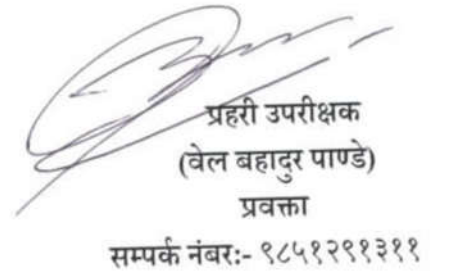 प्रहरी उपरीक्षक
(वेल बहादुर पाण्डे)
प्रवक्ता
सम्पर्क नंबर:- ९८५१२९१३११